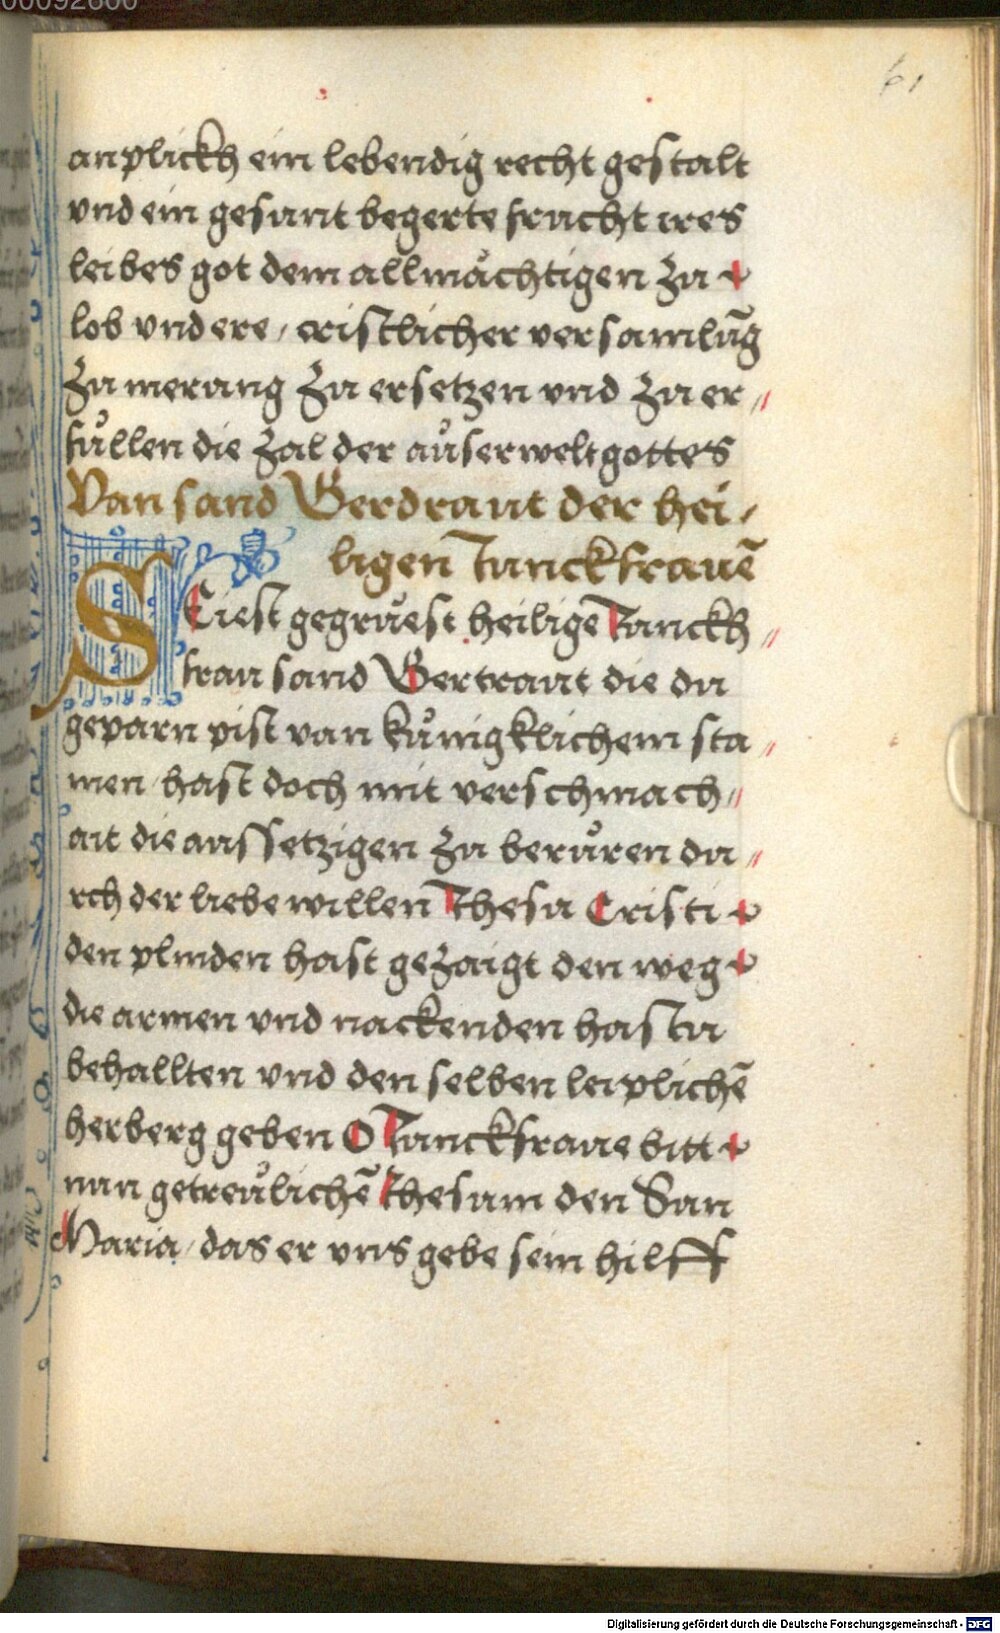 00092600
61
anplickh ein lebendig recht gestalt
vnd ein gesunt begerte frucht ires
leibes got dem allmächtigen zu
lob vnd ere / cristlicher versamlūg
zu merung zu ersetzen vnd zu er〃
füllen die zal der auserwelt gottes
Von sand Gerdraut der hei/
ligen Junckfrauē
SEiest gegrüest heilige Junckh〃
frau sand Gertraut die du
geporn pist von künigklichem sta〃
men hast doch mit verschmach〃
ait die aussetzigen zu berüren du〃
rch der liebe willen Jhesu Cristi
den plinden hast gezaigt den weg
die armen vnd nackenden hastu
behallten vnd den selben leiplichē
herberg geben O Junckfraue bitt
nun getreulichē Jhesum den Sun
Maria / das er vns gebe sein hilff
Digitalisierung gefördert durch die Deutsche Forschungsgemeinschaft - DFG